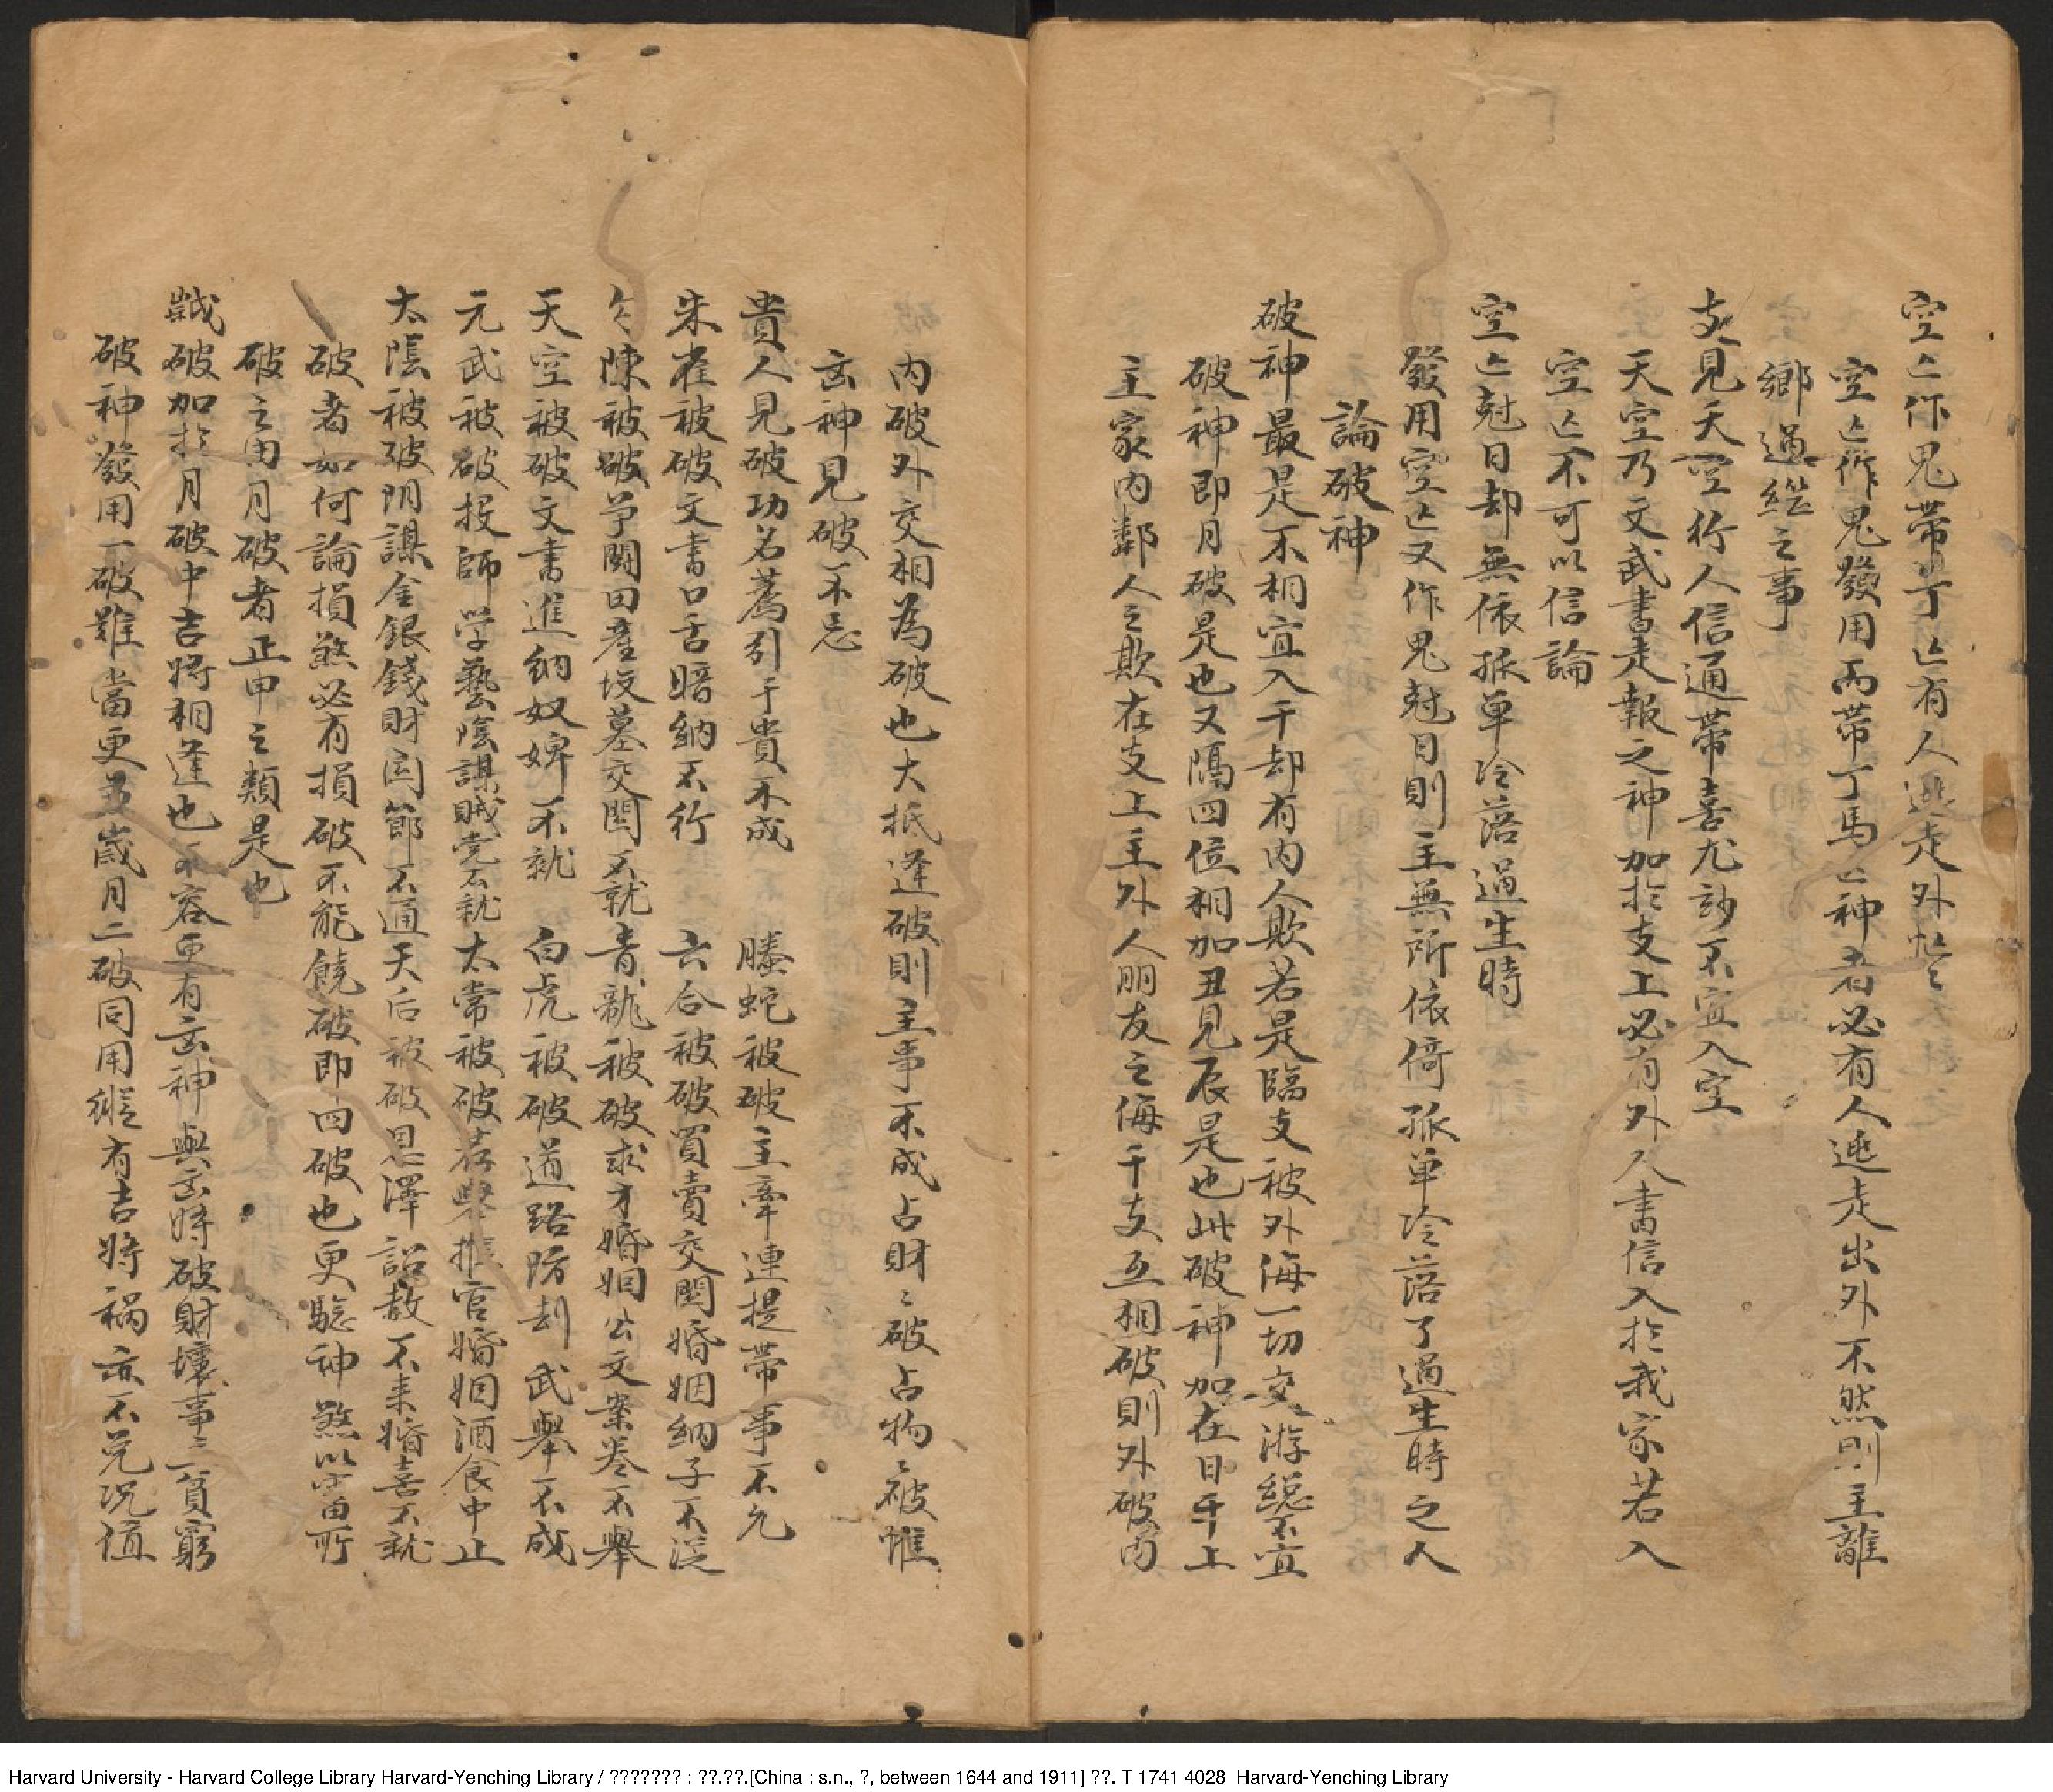 空亡作鬼帶丁亡有人逃走外
空亡作鬼發用而帶丁馬亡神者必有人逃走出外不然則主離
鄉過繼之事
支見天空行人信通帶喜尤訬不宜入空
天空乃文武書走報之神加扵支上必有外人書信入扵我家若入
空亡不可以信論
空亡尅日却無依孤單冷落過生時
發用空亡又作鬼尅日則主無所依倚孤单冷落了過生時之人
論破神
破神最是不相宜入干却有内人欺若是臨支被外侮一切交游縂不宜
破神即月破是也又隔四位相加丑見辰是也此破神加在日干上
主家内鄰人之欺在支上主外人朋友之侮干支互相破則外破内
内破外交相為破也大抵逢破則主事不成占財〻破占物〻破惟
㐫神見破不忌
貴人見破功名薦引干貴不成 螣蛇被破主牽連提帶事不允
朱雀被破文書口舌暗納不行 六合被破買賣交関婚姻納子不従
勾陳被破爭鬪田產坟墓交関不就 青龍被破求才婚姻公文案卷不舉
天空被破文書進納奴婢不就 白虎被破道路防刦武舉不成
元武被破投師学藝陰謀賊党不就 太常被破荐舉推官婚姻酒食中止
太陰被破阴謀金銀錢財関節不通 天后被破恩澤詔赦不来婚喜不就
破者如何論損煞必有損破不能饒破即四破也更騐神煞以當所
破之由月破者正申之類是也
歲破加扵月破中吉將相逢也不容更有㐫神與㐫將破財壞事二貧窮
破神發用一破難當更並歲月二破同用縱有吉將禍亦不免况值
Harvard University - Harvard College Library Harvard-Yenching Library / ??????? : ??.??.[China : s.n., ?, between 1644 and 1911] ??. T 1741 4028 Harvard-Yenching Library